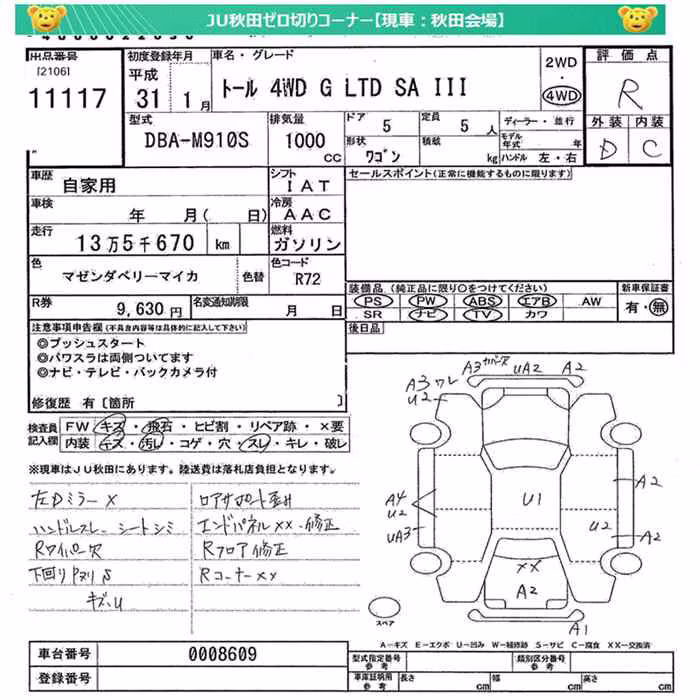 JU秋田ゼロ切りコーナー【現車：秋田会場】
出品番号
[2106]
11117
初度登録年月
平成
31 1月
車名・グレード
トール 4WD G LTD SA III
2WD
・
4WD
評価点
R
外装 内装
D C
型式
DBA-M910S
排気量
1000
CC
ドア 5
定員 5 人
形状 ワゴン
積載 kg
ディーラー・並行
モデル年式 年
ハンドル 左・右
車歴
自家用
シフト
IAT
セールスポイント(正常に機能するものに限ります)
車検
年 月( 日)
冷房
AAC
走行
13万5千670 km
燃料
ガソリン
色
マゼンダベリーマイカ
色替
色コード
R72
装備品 (純正品に限り○をつけてください)
新車保証書
PS PW ABS エアB AW
SR ナビ TV カワ
有・無
R券
9,630円
名変通知期限
月 日
後日品
注意事項申告欄(不具合内容等は具体的に記入して下さい)
◎プッシュスタート
◎パワスラは両側ついてます
◎ナビ・テレビ・バックカメラ付
修復歴 有〔箇所 〕
検査員
記入欄
FW キズ・飛石・ヒビ割・リペア跡・×要
内装 キズ・汚れ・コゲ・穴・スレ・キレ・破レ
※現車はJU秋田にあります。陸送費は落札店負担となります。
左Dミラー×
ハンドルスレ シートシミ
Rワイパー欠
下回りサビS
キズ、U
ロアサポート歪み
エンドパネルXX・修正
Rフロア修正
Rコーナーxx
A3 UA2 A2
A3 ワレ
U2
A4
U2
UA3
U1
A2
U2
A2
XX
A2
A1
スペア
A－キズ E－エクボ U－凹み W－補修跡 S－サビ C－腐食 XX－交換済
車台番号
0008609
登録番号
型式指定番号
参考
類別区分番号
参考
車庫証明用
参考
長さ cm 幅 cm 高さ cm